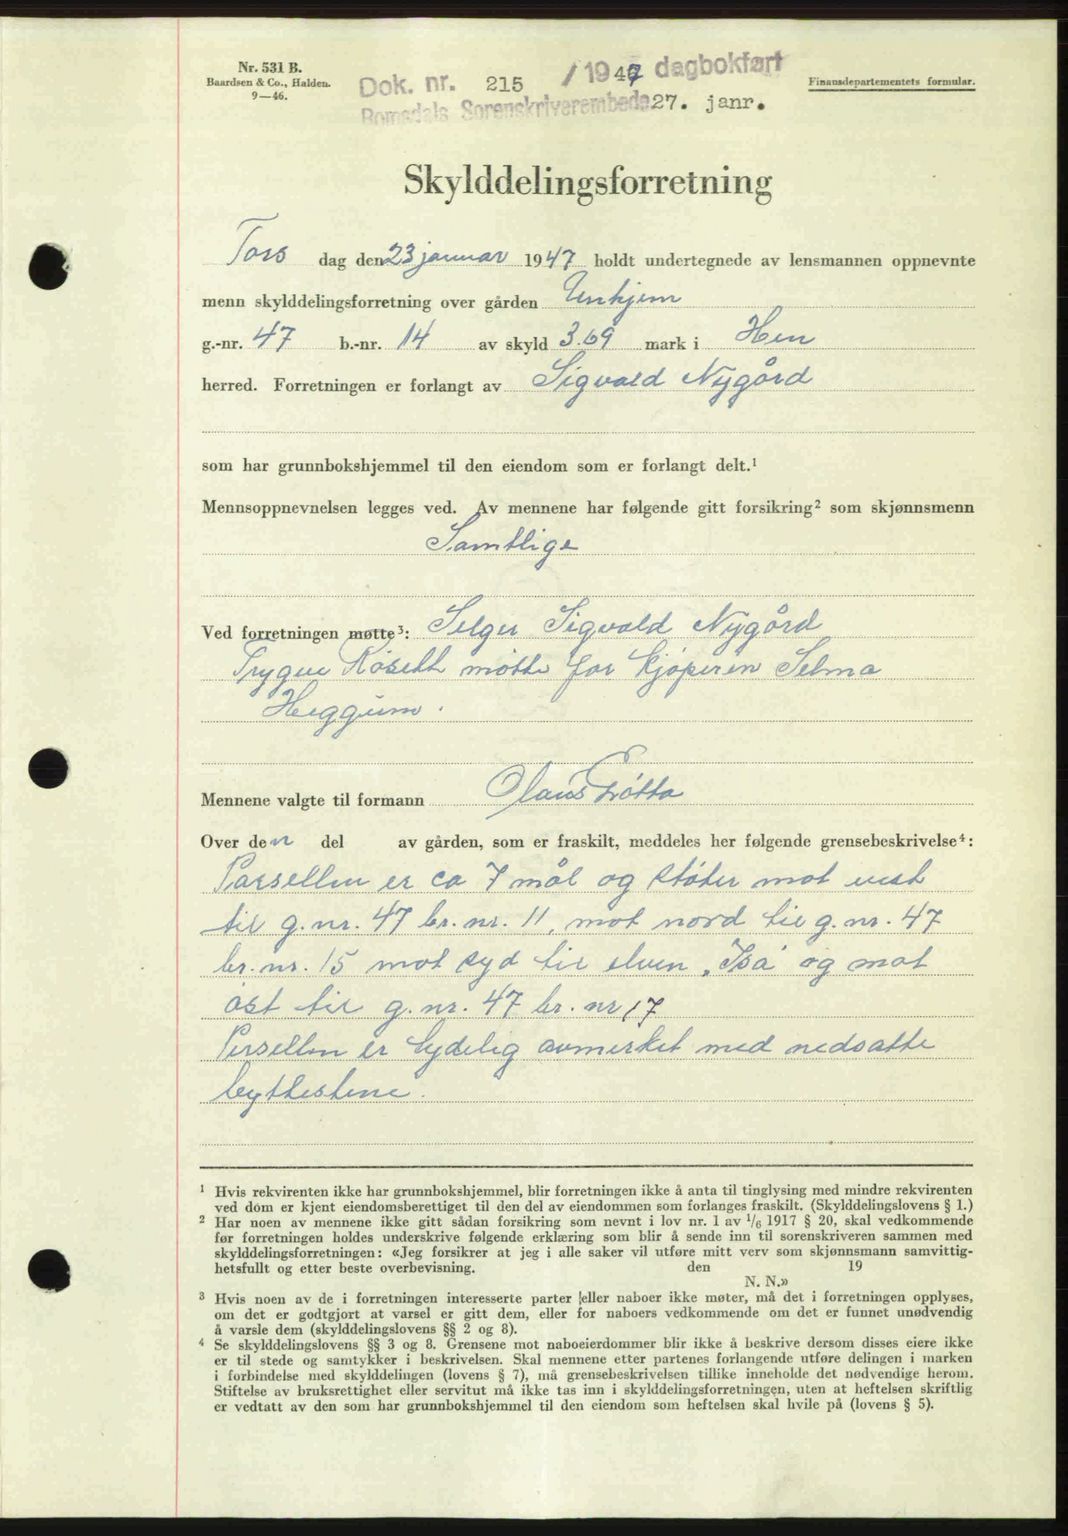 Nr. 531 B.
Baardsen & Co., Halden.
9—46.
Dok. nr. 215 / 1947 dagbokført
Romsdals Sorenskriverembede 27. janr.
Finansdepartementets formular.
Skylddelingsforretning
Tors dag den 23 januar 1947 holdt undertegnede av lensmannen oppnevnte
menn skylddelingsforretning over gården Unhjem
g.-nr. 47 b.-nr. 14 av skyld 3.69 mark i Hen
herred. Forretningen er forlangt av Sigvald Nygård
som har grunnbokshjemmel til den eiendom som er forlangt delt.¹
Mennsoppnevnelsen legges ved. Av mennene har følgende gitt forsikring² som skjønnsmenn
Samtlige
Ved forretningen møtte³: Selger Sigvald Nygård
Trygve Kösett mötte for kjöperen Selma
Heggum.
Mennene valgte til formann Olaus Grötta
Over den del av gården, som er fraskilt, meddeles her følgende grensebeskrivelse⁴:
Parsellen er ca 7 mål og stöter mot vest
til g.nr. 47 br. nr. 11, mot nord til g. nr. 47
br. nr. 15 mot syd til elven "Isa" og mot
öst til g. nr. 47 br. nr 17
Persellen er tydelig avmerket med nedsatte
byttestene.
¹ Hvis rekvirenten ikke har grunnbokshjemmel, blir forretningen ikke å anta til tinglysing med mindre rekvirenten
ved dom er kjent eiendomsberettiget til den del av eiendommen som forlanges fraskilt. (Skylddelingslovens § 1.)
² Har noen av mennene ikke gitt sådan forsikring som nevnt i lov nr. 1 av 1/6 1917 § 20, skal vedkommende
før forretningen holdes underskrive følgende erklæring som blir å sende inn til sorenskriveren sammen med
skylddelingsforretningen: «Jeg forsikrer at jeg i alle saker vil utføre mitt verv som skjønnsmann samvittig-
hetsfullt og etter beste overbevisning. den 19
N. N.»
³ Hvis noen av de i forretningen interesserte parter eller naboer ikke møter, må det i forretningen opplyses,
om det er godtgjort at varsel er gitt dem, eller for naboers vedkommende om det er funnet unødvendig
å varsle dem (skylddelingslovens §§ 2 og 8).
⁴ Se skylddelingslovens §§ 3 og 8. Grensene mot naboeierdommer blir ikke å beskrive dersom disses eiere ikke
er til stede og samtykker i beskrivelsen. Skal mennene etter partenes forlangende utføre delingen i marken
i forbindelse med skylddelingen (lovens § 7), må grensebeskrivelsen tillike inneholde det nødvendige herom.
Stiftelse av bruksrettighet eller servitut må ikke tas inn i skylddelingsforretningen, uten at heftelsen skriftlig
er vedtatt av den som har grunnbokshjemmel til den eiendom som heftelsen skal hvile på (lovens § 5).